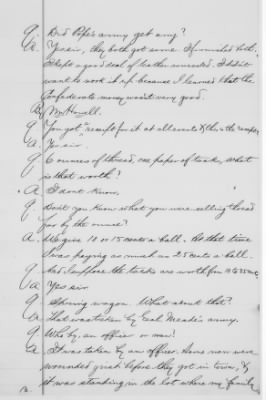 Q. Did Pope's army get any?
A. Yes sir, they both got some. I furnished both.
I kept a good deal of leather unworked. I didn't
want to work it up because I learned that the
Confederate money wasn't very good.
By Mr. Howell.
Q. You got receipt for it at all events & this is the receipt
A. Yes sir.
Q. 6 ounces of thread, one paper of tacks, what
is that worth?
A. I dont know.
Q. Don't you know what you were selling thread
for by the ounce?
A. We give 10 or 15 cents a ball. At that time
I was paying as much as 25 cents a ball.
Q. And I suppose the tacks are worth from
A. Yes sir
Q. Spring wagon. What about that?
A. That was taken by Genl Meade's army.
Q. Who by, an officer or man?
A. It was taken by an officer. Some men were
wounded before they got in town, &
it was standing in the lot where my family